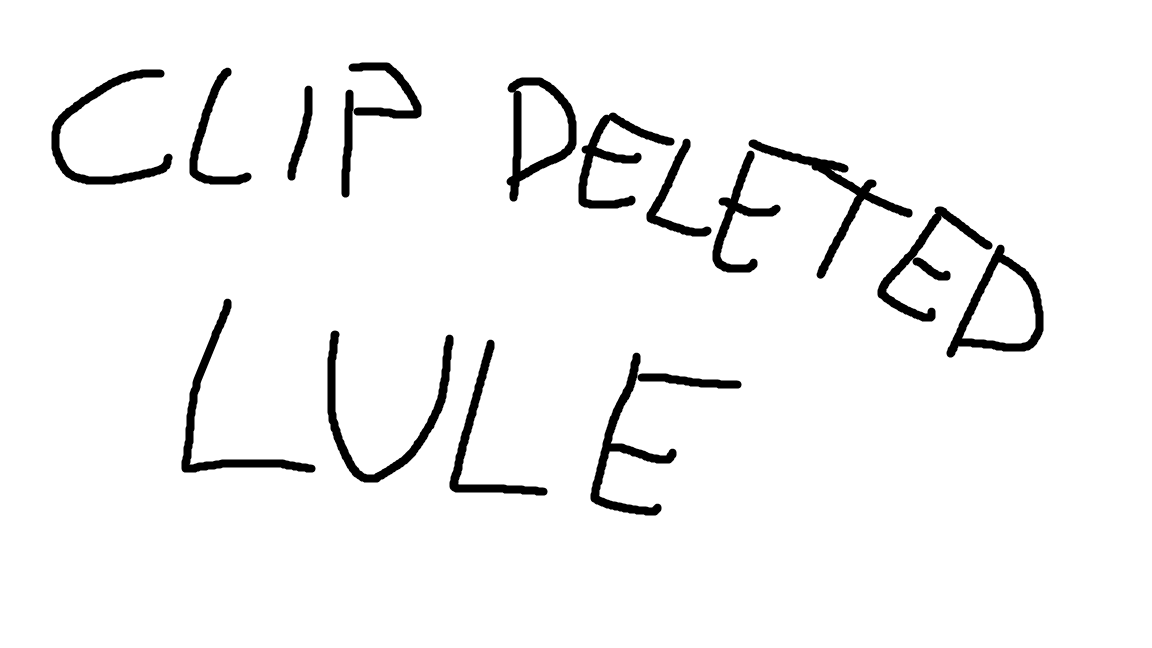 CLIP DELETED
LULE